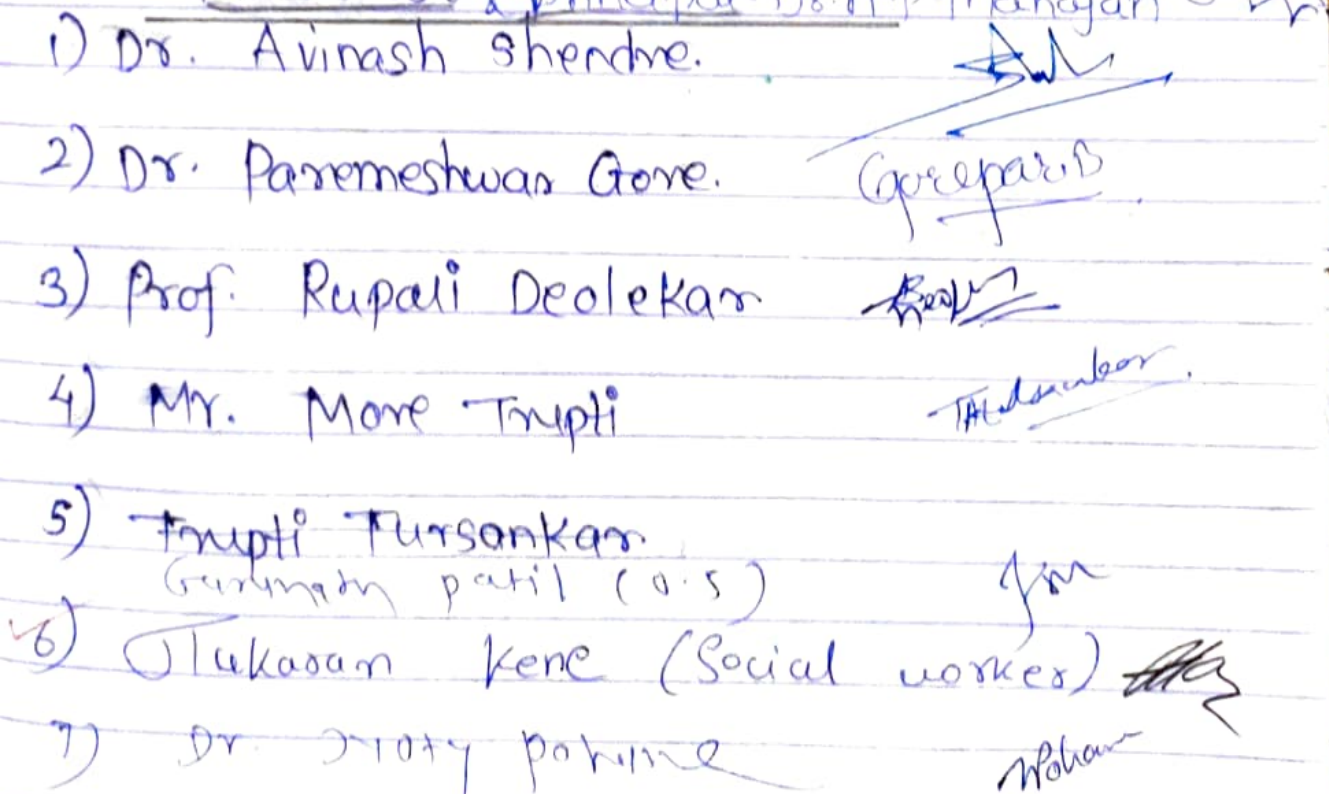 & Principal Dr. Mahajan
1) Dr. Avinash Shendre.
2) Dr. Paremeshwar Gore. Gorepari.B
3) Prof. Rupali Deolekar
4) Mr. More Trupti
5) Trupti Tursankar
Gurunath patil (O.S)
6) Tukaram Kene (Social worker)
7) Dr.